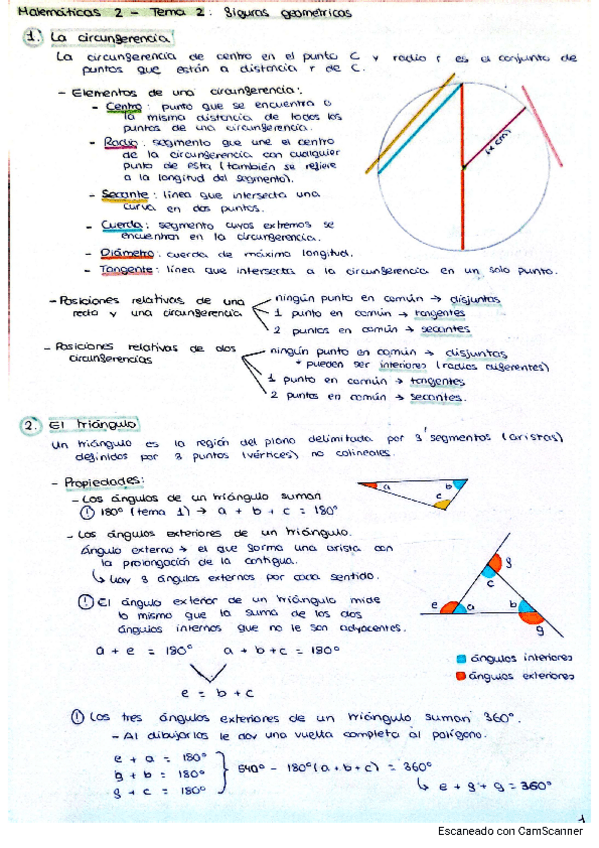 Matemáticas 2 - Tema 2: figuras geométricas
1. La circunferencia
La circunferencia de centro en el punto C y radio r es el conjunto de
puntos que están a distancia r de C.
- Elementos de una circunferencia:
- Centro: punto que se encuentra a
la misma distancia de todos los
puntos de una circunferencia.
- Radio: segmento que une el centro
de la circunferencia con cualquier
punto de esta (también se refiere
a la longitud del segmento).
- Secante: línea que intersecta una
curva en dos puntos.
- Cuerda: segmento cuyos extremos se
encuentran en la circunferencia.
- Diámetro: cuerda de máxima longitud.
- Tangente: línea que intersecta a la circunferencia en un solo punto.
- Posiciones relativas de una
recta y una circunferencia
ningún punto en común → disjuntas
1 punto en común → tangentes
2 puntos en común → secantes
- Posiciones relativas de dos
circunferencias
ningún punto en común → disjuntas
* pueden ser interiores (radios diferentes)
1 punto en común → tangentes
2 puntos en común → secantes.
2. El triángulo
Un triángulo es la región del plano delimitada por 3 segmentos (aristas)
definidos por 3 puntos (vértices) no colineales.
- Propiedades:
- Los ángulos de un triángulo suman
! 180° (tema 1) → a + b + c = 180°
a b c
- Los ángulos exteriores de un triángulo.
Ángulo externo → el que forma una arista con
la prolongación de la contigua.
↳ hay 3 ángulos externos por cada sentido.
! El ángulo exterior de un triángulo mide
lo mismo que la suma de los dos
ángulos internos que no le son adyacentes.
a + e = 180° a + b + c = 180°
e = b + c
f
c
e a b
g
ángulos interiores
ángulos exteriores
! Los tres ángulos exteriores de un triángulo suman 360°.
- Al dibujarlos le doy una vuelta completa al polígono.
e + a = 180°
g + b = 180°
f + c = 180°
540° - 180° (a + b + c) = 360°
↳ e + f + g = 360°
1
Escaneado con CamScanner